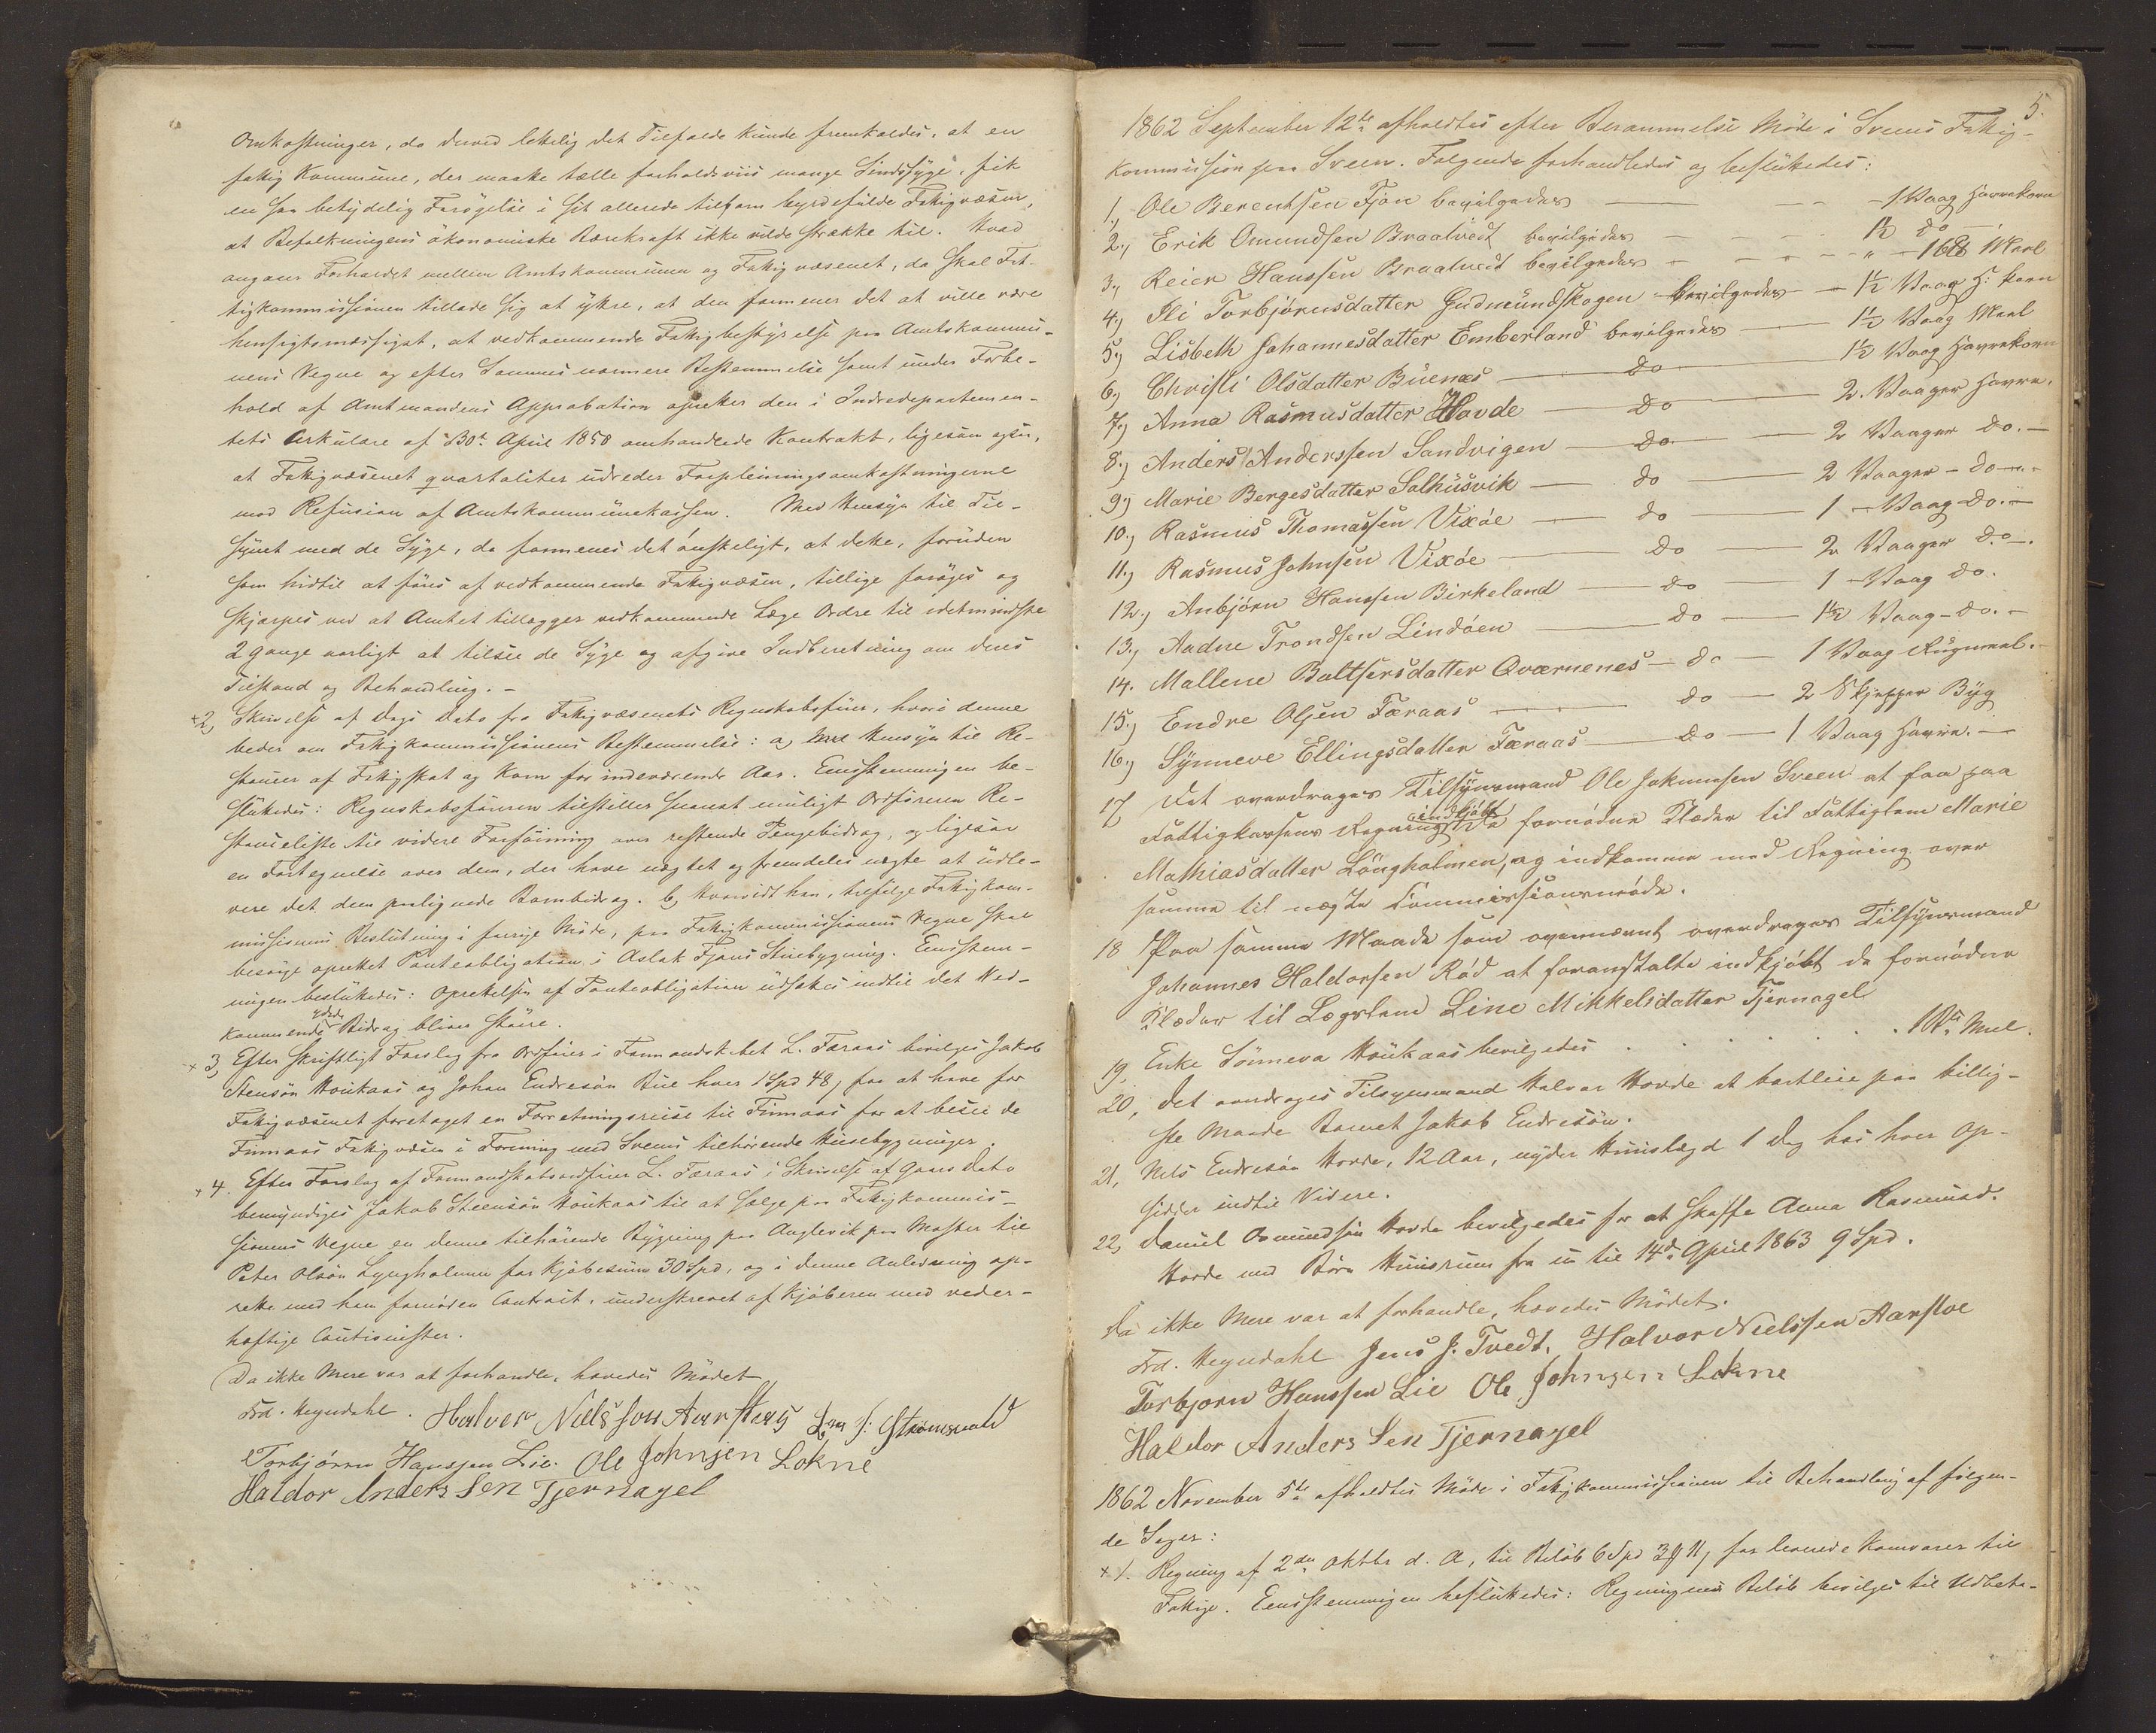 Omkostninger, da derved lettelig det Tilfælde kunde fremkaldes, at en
fattig Kommune, der maatte tælle forholdsviis mange Sindssyge, fik
en saa betydelig Forøgelse i sit allerede tilforn byrdefulde Fattigvæsen,
at Befolkningens økonomiske Bærekraft ikke vilde strække til. Hvad
angaaer Forholdet mellem Amtskommunen og Fattigvæsenet, da skal Fat-
tigkommissionen tillade sig at yttre, at den formener det at ville være
hensigtsmæssigst, at vedkommende Fattigbestyrelse paa Amtskommu-
nens Vegne og efter Sammes nærmere Bestemmelse samt under Forbe-
hold af Amtmandens Approbation opretter den i Indredepartemen-
tets Cirkulære af 30te April 1858 omhandlede Kontrakt, ligesaa ogsaa,
at Fattigvæsenet qvartaliter udreder Forpleiningsomkostningerne
mod Refusion af Amtskommunekassen. Med Hensyn til Til-
synet med de Syge, da formenes det ønskeligt, at dette, foruden
som hidtil at føres af vedkommende Fattigvæsen, tillige forøges og
skjærpes ved at Amtet tillægger vedkommende Læge Ordre til idetmindste
2 Gange aarligt at tilsee de Syge og afgive Indberetning om deres
Tilstand og Behandling. -
+2, Skrivelse af Dags Dato fra Fattigvæsenets Regnskabsfører, hvori denne
beder om Fattigkommissionens Bestemmelse: a, med Hensyn til Re-
stancer af Fattigskat og Korn for indeværende Aar. Eenstemmigen be-
sluttedes: Regnskabsføreren tilstiller snarest muligt Ordføreren Re-
stanceliste til videre Forføining over restende Pengebidrag, og ligesaa
en Fortegnelse over dem, der have nægtet og fremdeles nægte at udle-
vere det dem paalignede Kornbidrag. b, Hvorvidt han, ifølge Fattigkom-
missionens Beslutning i forrige Møde, paa Fattigkommissionens Vegne skal
besørge oprettet Panteobligation i Aslak Fjons Stuebygning. Eenstem-
migen besluttedes: Oprettelsen af Panteobligation udsættes indtil det Ved-
kommende ydede Bidrag bliver større.
+3, Efter skriftligt Forslag fra Ordfører i Formandskabet L. Færaas bevilges Jakob
Steensøn Houkaas og Johan Endresøn Bue hver 1 Spd 48, for at have for
Fattigvæsenet foretaget en Forretningsreise til Finnaas for at besee de
Finnaas Fattigvæsen i Forening med Sveens tilhørende Huusebygninger.
+4. Efter Forslag af Formandskabsordfører L. Færaas i Skrivelse af Gaars Dato
bemyndiges Jakob Steensøn Houkaas til at sælge paa Fattigkommis-
sionens Vegne en denne tilhørende Bygning paa Anglevik paa Moster til
Peter Olsøn Lyngholmen for Kjøbesum 30 Spd, og i denne Anledning op-
rette med ham fornøden Contract, underskrevet af Kjøberen med veder-
hæftige Cautionister.
Da ikke Mere var at forhandle, hævedes Mødet
Frd. Heyerdahl. Halvor Nielsson Aarskog Lars J: Strømsvold
Torbjørn Hanssen Lie. Ole Johnsen Lokne
Haldor Anders Sen Tjernagel
5.
1862 September 12te afholdtes efter Berammelse Møde i Sveens Fattig-
kommission paa Sveen. Følgende forhandledes og besluttedes:
1, Ole Berentsen Fjon bevilgedes - 1 Vaag Havrekorn
2, Erik Omundsen Braatvedt bevilgedes 1½ do
3, Reier Hanssen Braatvedt bevilgedes - 16 ℔ Meel
4, Eli Torbjørnsdatter Gudmundskogen bevilgedes - 1½ Vaag H. korn
5, Lisbeth Johannesdatter Emberland bevilgedes - 1½ Vaag Meel
6, Christi Olsdatter Buenæs - do - 1½ Vaag Havrekorn
7, Anna Rasmusdatter Hovde - do - 2 Vaager Havre.
8, Anders Anderssen Sandvigen - do - 2 Vaager do. -
9, Marie Bergesdatter Salhusvik - do - 2 Vaager - do -
10, Rasmus Thomassen Vixøe - do - 1 - Vaag - do. -
11, Rasmus Johnsen Vixøe - do - 2 Vaager do -
12, Anbjørn Hanssen Birkeland - do - 1 - Vaag do.
13, Aadne Trondsen Lindøen - do - 1½ Vaag - do. -
14. Mallene Baltsersdatter Qværnenes - do - 1 Vaag Rugmeel. -
15, Endre Olsen Færaas - do - 2 Skjepper Byg
16, Synneve Ellingsdatter Færaas - do - 1 Vaag Havre. -
17 Det overdrages Tilsynsmand Ole Jokumsen Sveen at faa paa
Fattigkassens Regning indkjøbt de fornødne Klæder til Fattiglem Marie
Mathiasdatter Lÿngholmen, og indkomme med Regning over
samme til næste Commissionsmøde.
18 Paa samme Maade som ovennævnt overdrages Tilsynsmand
Johannes Haldorsen Rød at foranstalte indkjøbt de fornødne
Klæder til Lægslem Line Mikkelsdatter Tjernagel
19, Enke Sønneva Houkaas bevilgedes . . . . . 18 ℔ Meel.
20, Det overdrages Tilsynsmand Halvor Hovde at bortleie paa billig-
ste Maade Barnet Jakob Endresøn.
21, Nels Endresøn Hovde, 12 Aar, nyder Huuslægd 1 Dag hos hver Op-
sidder indtil Videre.
22, Daniel Osmundsøn Hovde bevilgedes for at skaffe Anna Rasmusd.
Hovde med Børn Huusrum fra nu til 14de April 1863 9 Spd.
Da ikke Mere var at forhandle, hævedes Mødet.
Frd. Heyerdahl Jens J. Tvedt, Halvor Nielssen Aarskoe
Torbjorn Hanssen Lie Ole Johnsen Lokne
Haldor Anders Sen Tjernagel
1862 November 5te afholdtes Møde i Fattigkommissionen til Behandling af følgen-
de Sager:
+1. Regning af 2den Oktbr d. A, til Beløb 6 Spd 3 11, for leverede Kornvarer til
Fattige. Eenstemmigen besluttedes: Regningens Beløb bevilges til Udbeta-